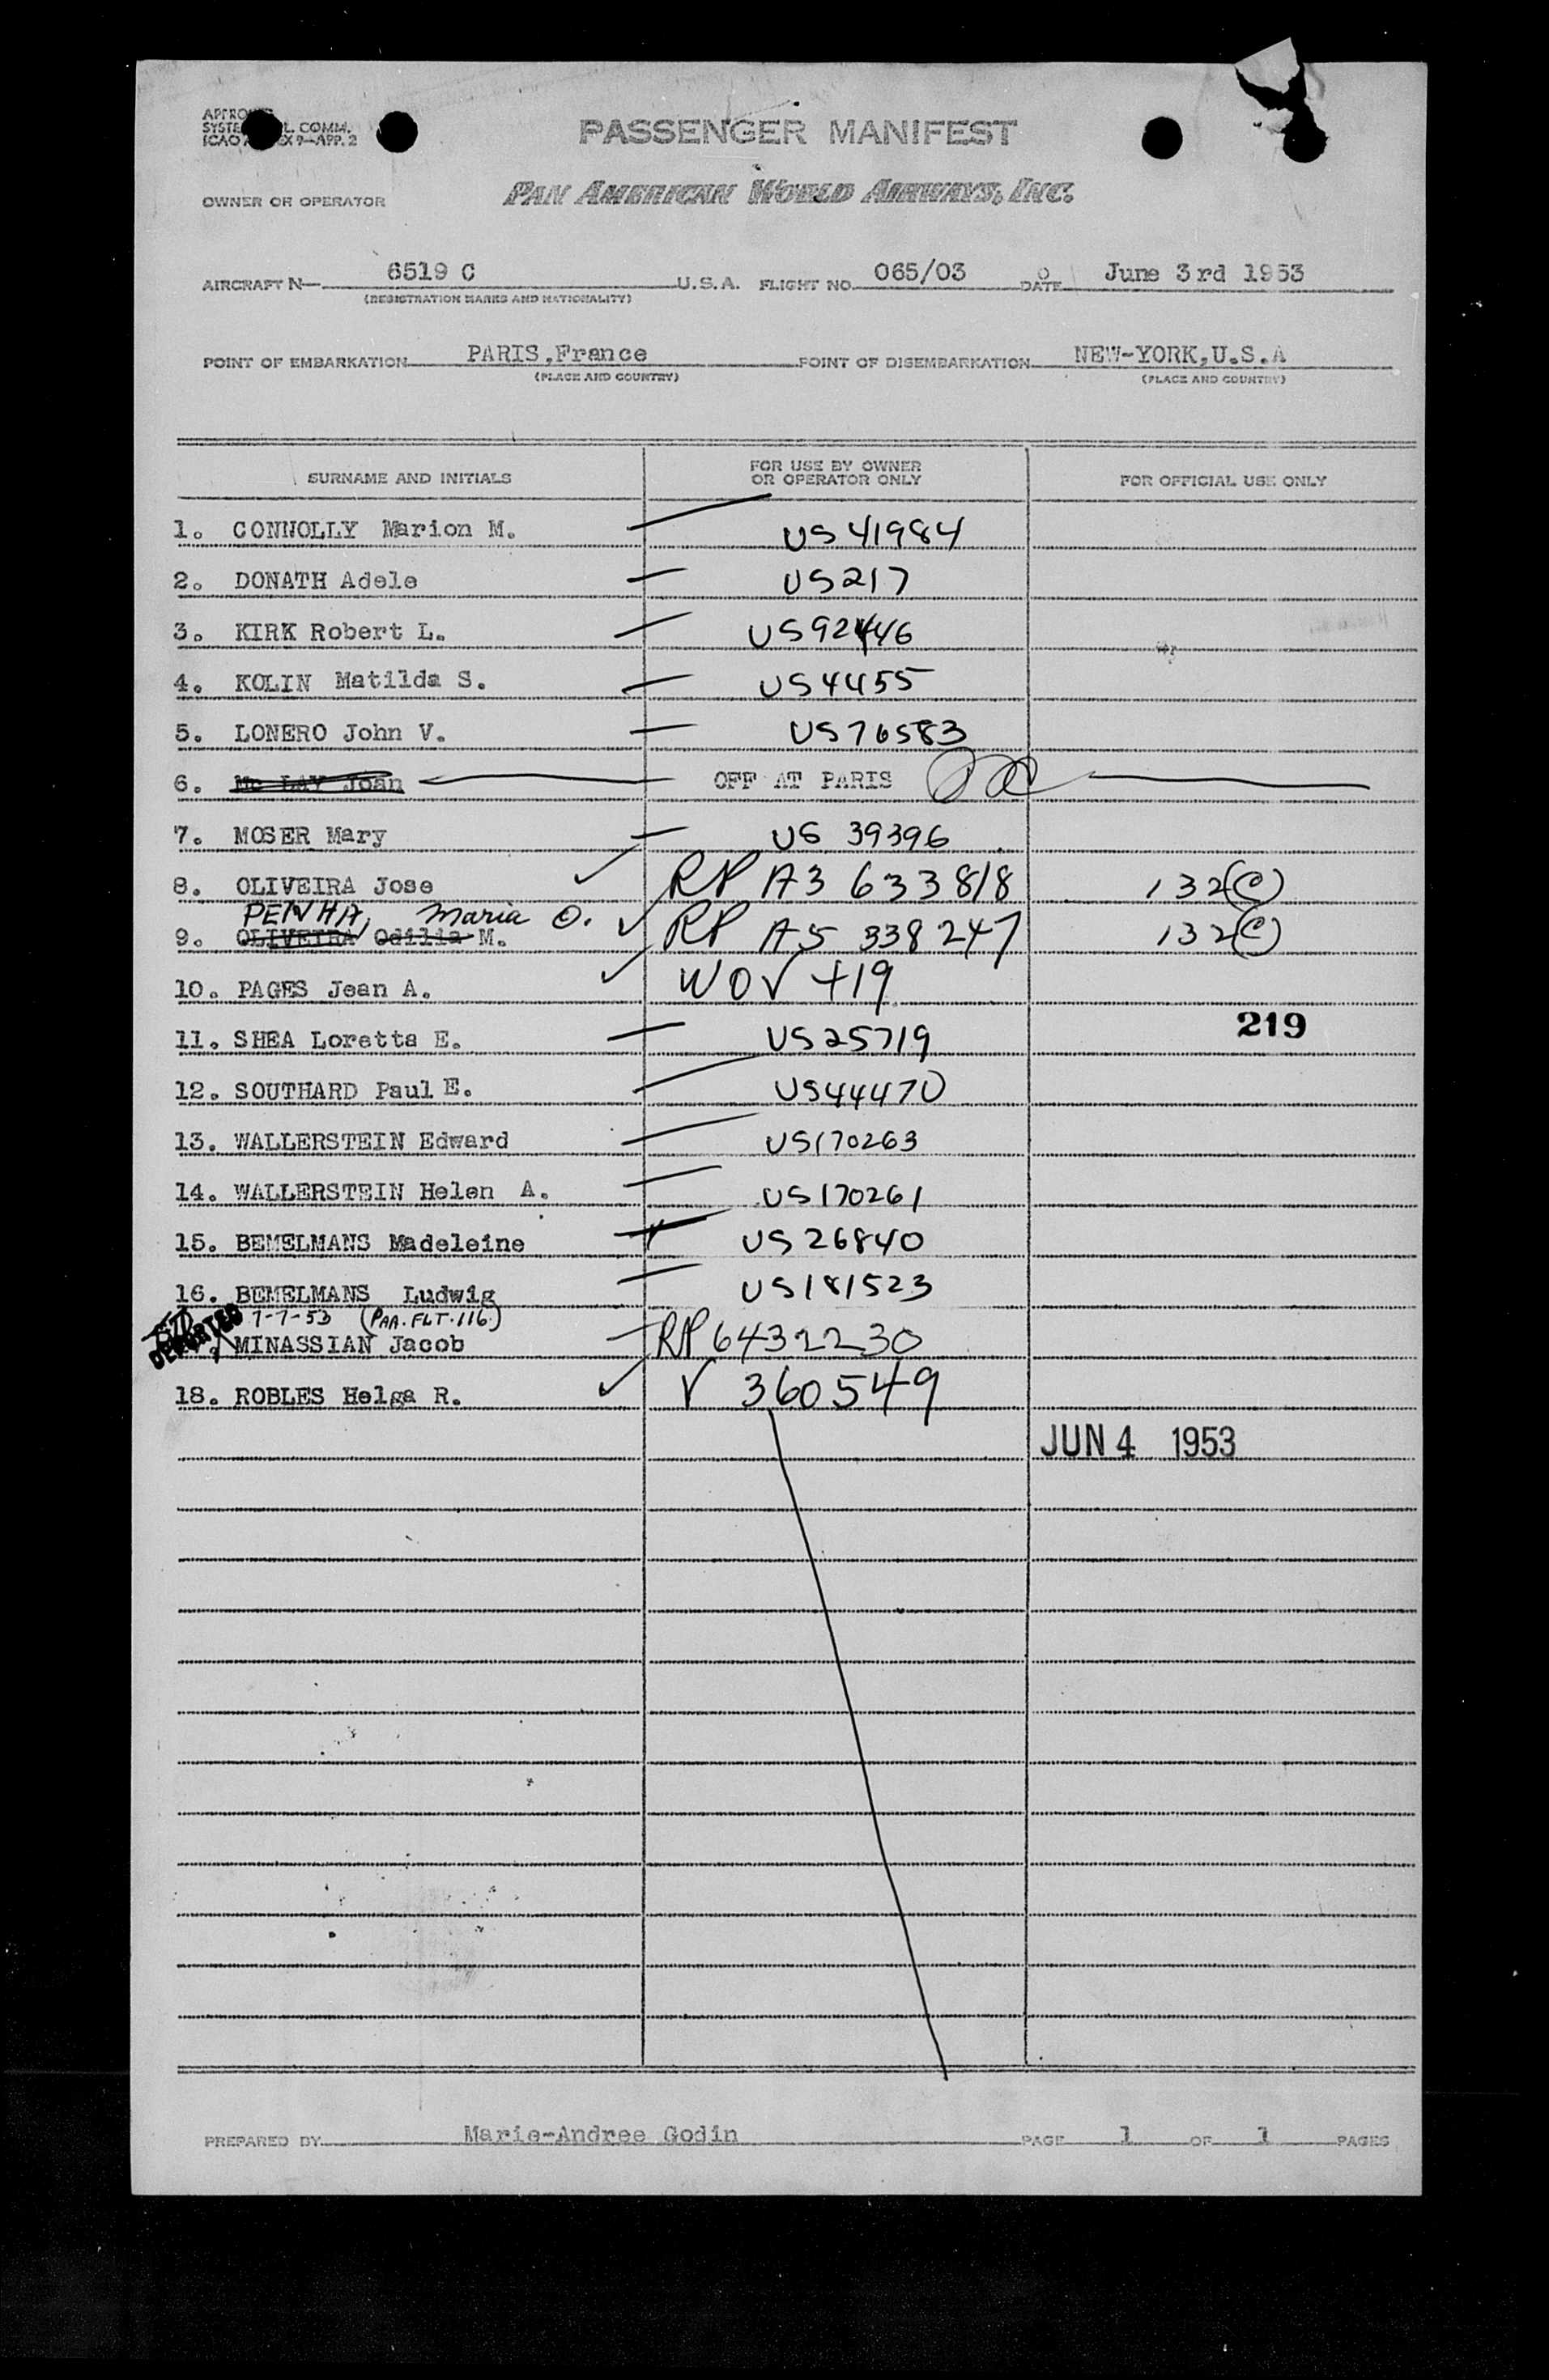 PASSENGER MANIFEST
L. COMM.
ICAO 9-APP. 2
OWNER OR OPERATOR PAN AMERICAN WORLD AIRWAYS, INC.
AIRCRAFT N 6519 C U.S.A. FLIGHT NO. 065/03 DATE June 3rd 1953
(REGISTRATION MARKS AND NATIONALITY)
POINT OF EMBARKATION PARIS,France POINT OF DISEMBARKATION NEW-YORK,U.S.A
(PLACE AND COUNTRY) (PLACE AND COUNTRY)
SURNAME AND INITIALS FOR USE BY OWNER OR OPERATOR ONLY FOR OFFICIAL USE ONLY
1. CONNOLLY Marion M. US 41984
2. DONATH Adele US217
3. KIRK Robert L. US92446
4. KOLIN Matilda S. US4455
5. LONERO John V. US76583
6. Mc LAY Joan OFF AT PARIS
7. MOSER Mary US 39396
8. OLIVEIRA Jose RP A3 633818 132(C)
PENHA, Maria O.
9. OLIVEIRA Odilia M. RP A5 338247 132(C)
10. PAGES Jean A. WOV 419
11. SHEA Loretta E. US25719 219
12. SOUTHARD Paul E. US44470
13. WALLERSTEIN Edward US170263
14. WALLERSTEIN Helen A. US170261
15. BEMELMANS Madeleine US26840
16. BEMELMANS Ludwig US181523
DEPORTED 7-7-53 (PAA. FLT. 116.)
MINASSIAN Jacob RP6432230
18. ROBLES Helga R. V 360549
JUN 4 1953
PREPARED BY Marie-Andree Godin PAGE 1 OF 1 PAGES